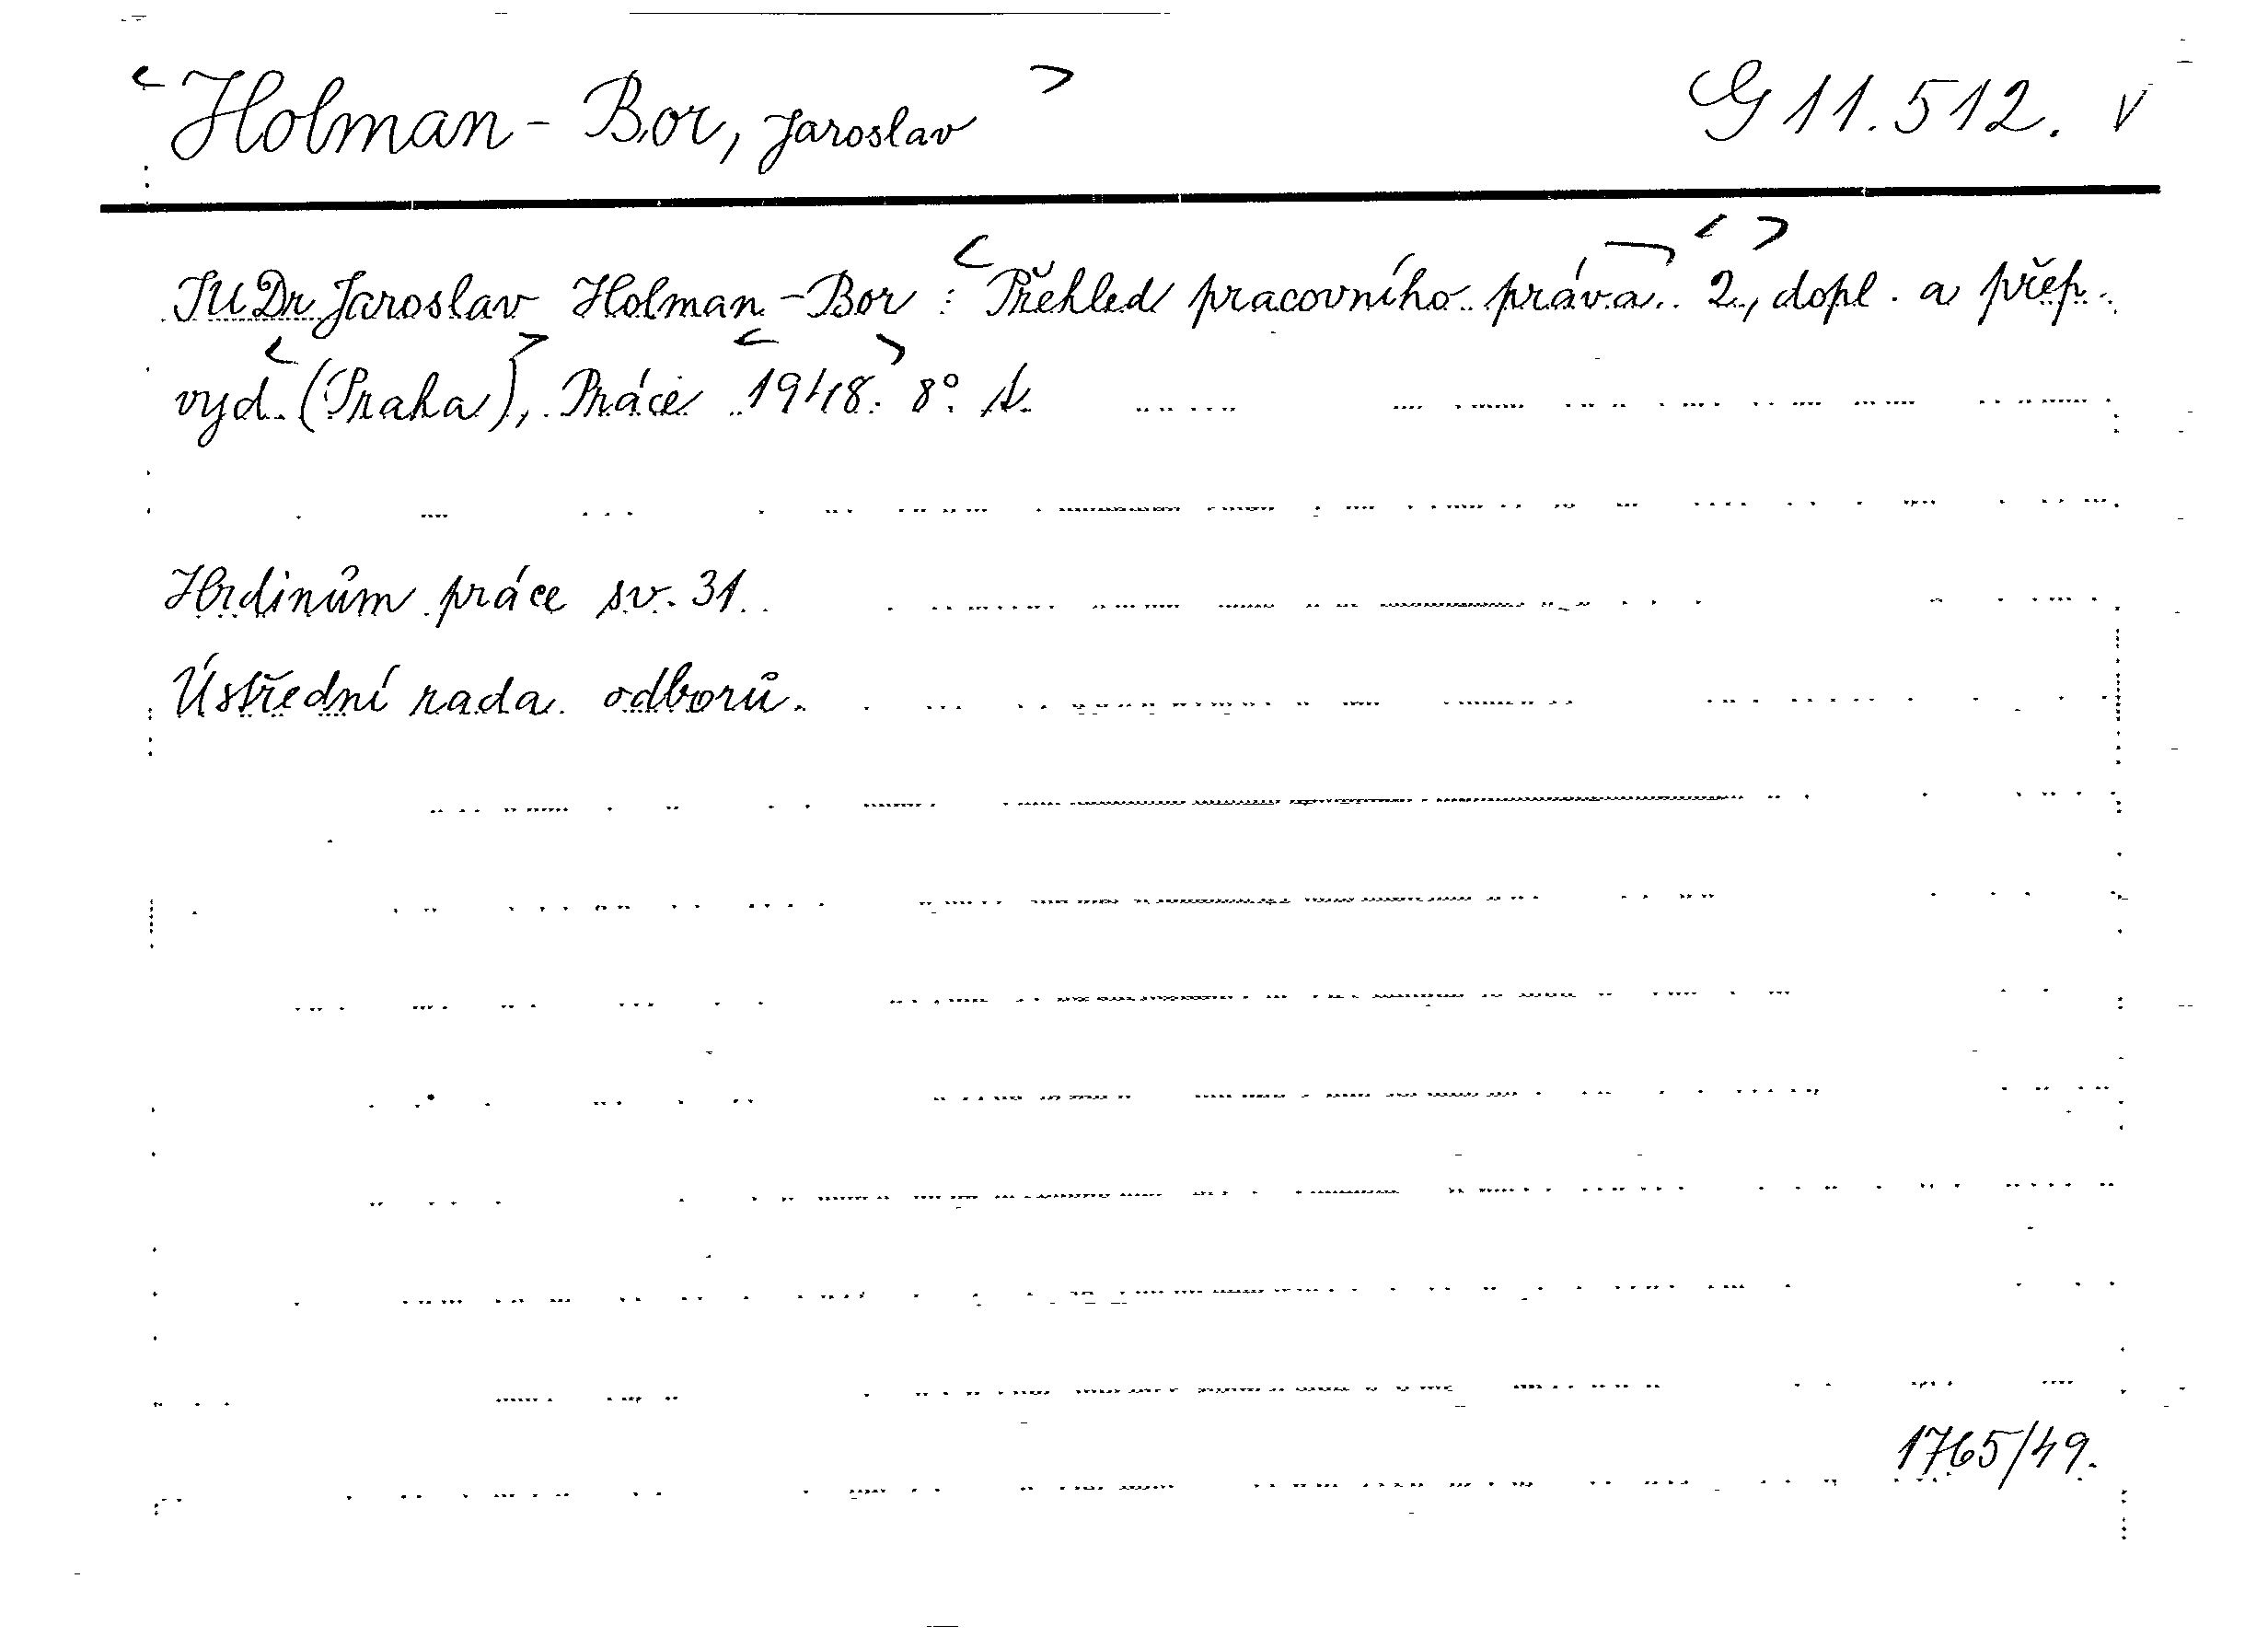 Holman - Bor, Jaroslav G 11.512. V
JUDr Jaroslav Holman - Bor : Přehled pracovního práva. 2., dopl. a přep.
vyd. (Praha), Práce 1948. 8° s.
Hrdinům práce sv. 31.
Ústřední rada odborů.
1765/49.